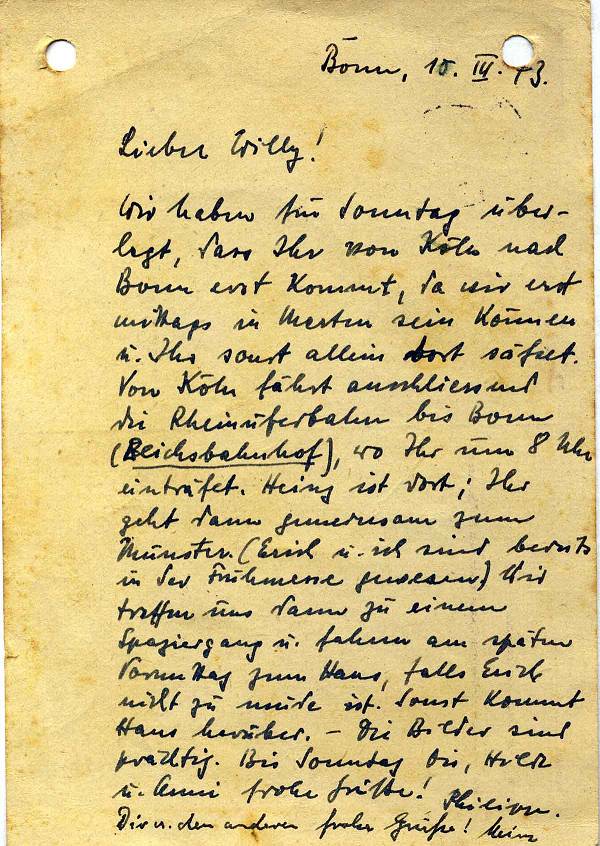 Bonn, 10. III. 43.
Lieber Willy!
Wir haben für Sonntag über-
legt, dass Ihr von Köln nach
Bonn erst kommt, da wir erst
mittags in Merten sein können
u. Ihr sonst allein dort säßet.
Von Köln fährt anschliessend
die Rheinuferbahn bis Bonn
(Reichsbahnhof), wo Ihr um 8 Uhr
einträfet. Heinz ist dort; Ihr
geht dann gemeinsam zum
Münster. (Erich u. ich sind bereits
in der Frühmesse gewesen) Wir
treffen uns dann zu einem
Spaziergang u. fahren am späten
Vormittag zum Haus, falls Erich
nicht zu müde ist. Sonst kommt
Hans herüber. – Die Bilder sind
prächtig. Bis Sonntag Dir,
u. Anni frohe Grüße! Philipp.
Dir u. den anderen frohe Grüße! Heinz